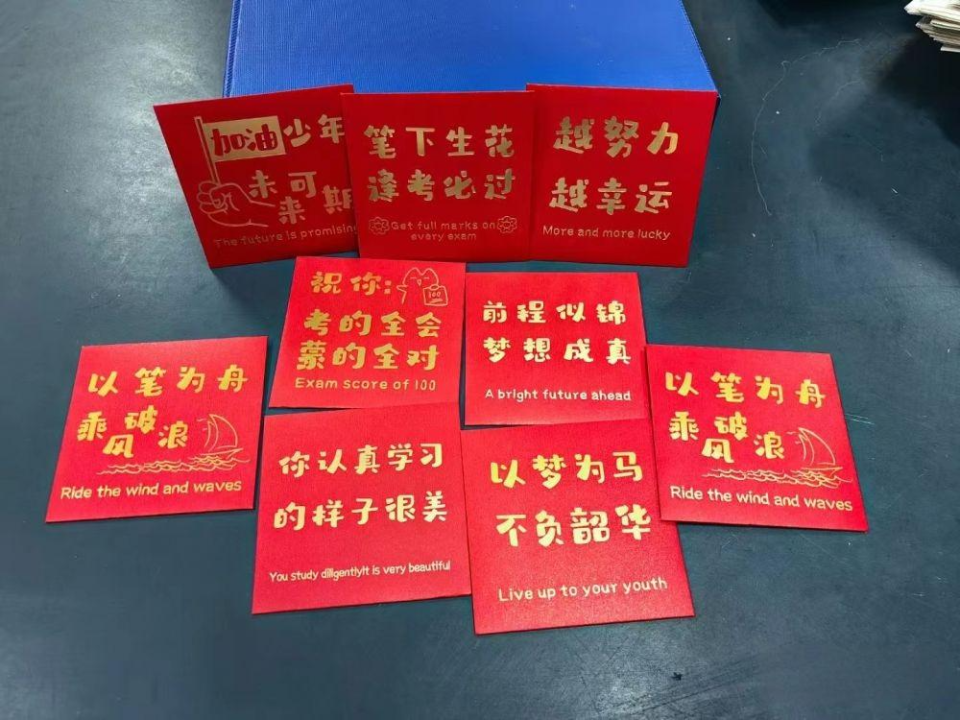 加油少年
未可
来期
The future is promising
笔下生花
逢考必过
Get full marks on
every exam
越努力
越幸运
More and more lucky
祝你:
100
考的全会
蒙的全对
Exam score of 100
前程似锦
梦想成真
A bright future ahead
以笔为舟
乘破
风浪
Ride the wind and waves
以笔为舟
乘破
风浪
Ride the wind and waves
你认真学习
的样子很美
You study diligentlyIt is very beautiful
以梦为马
不负韶华
Live up to your youth